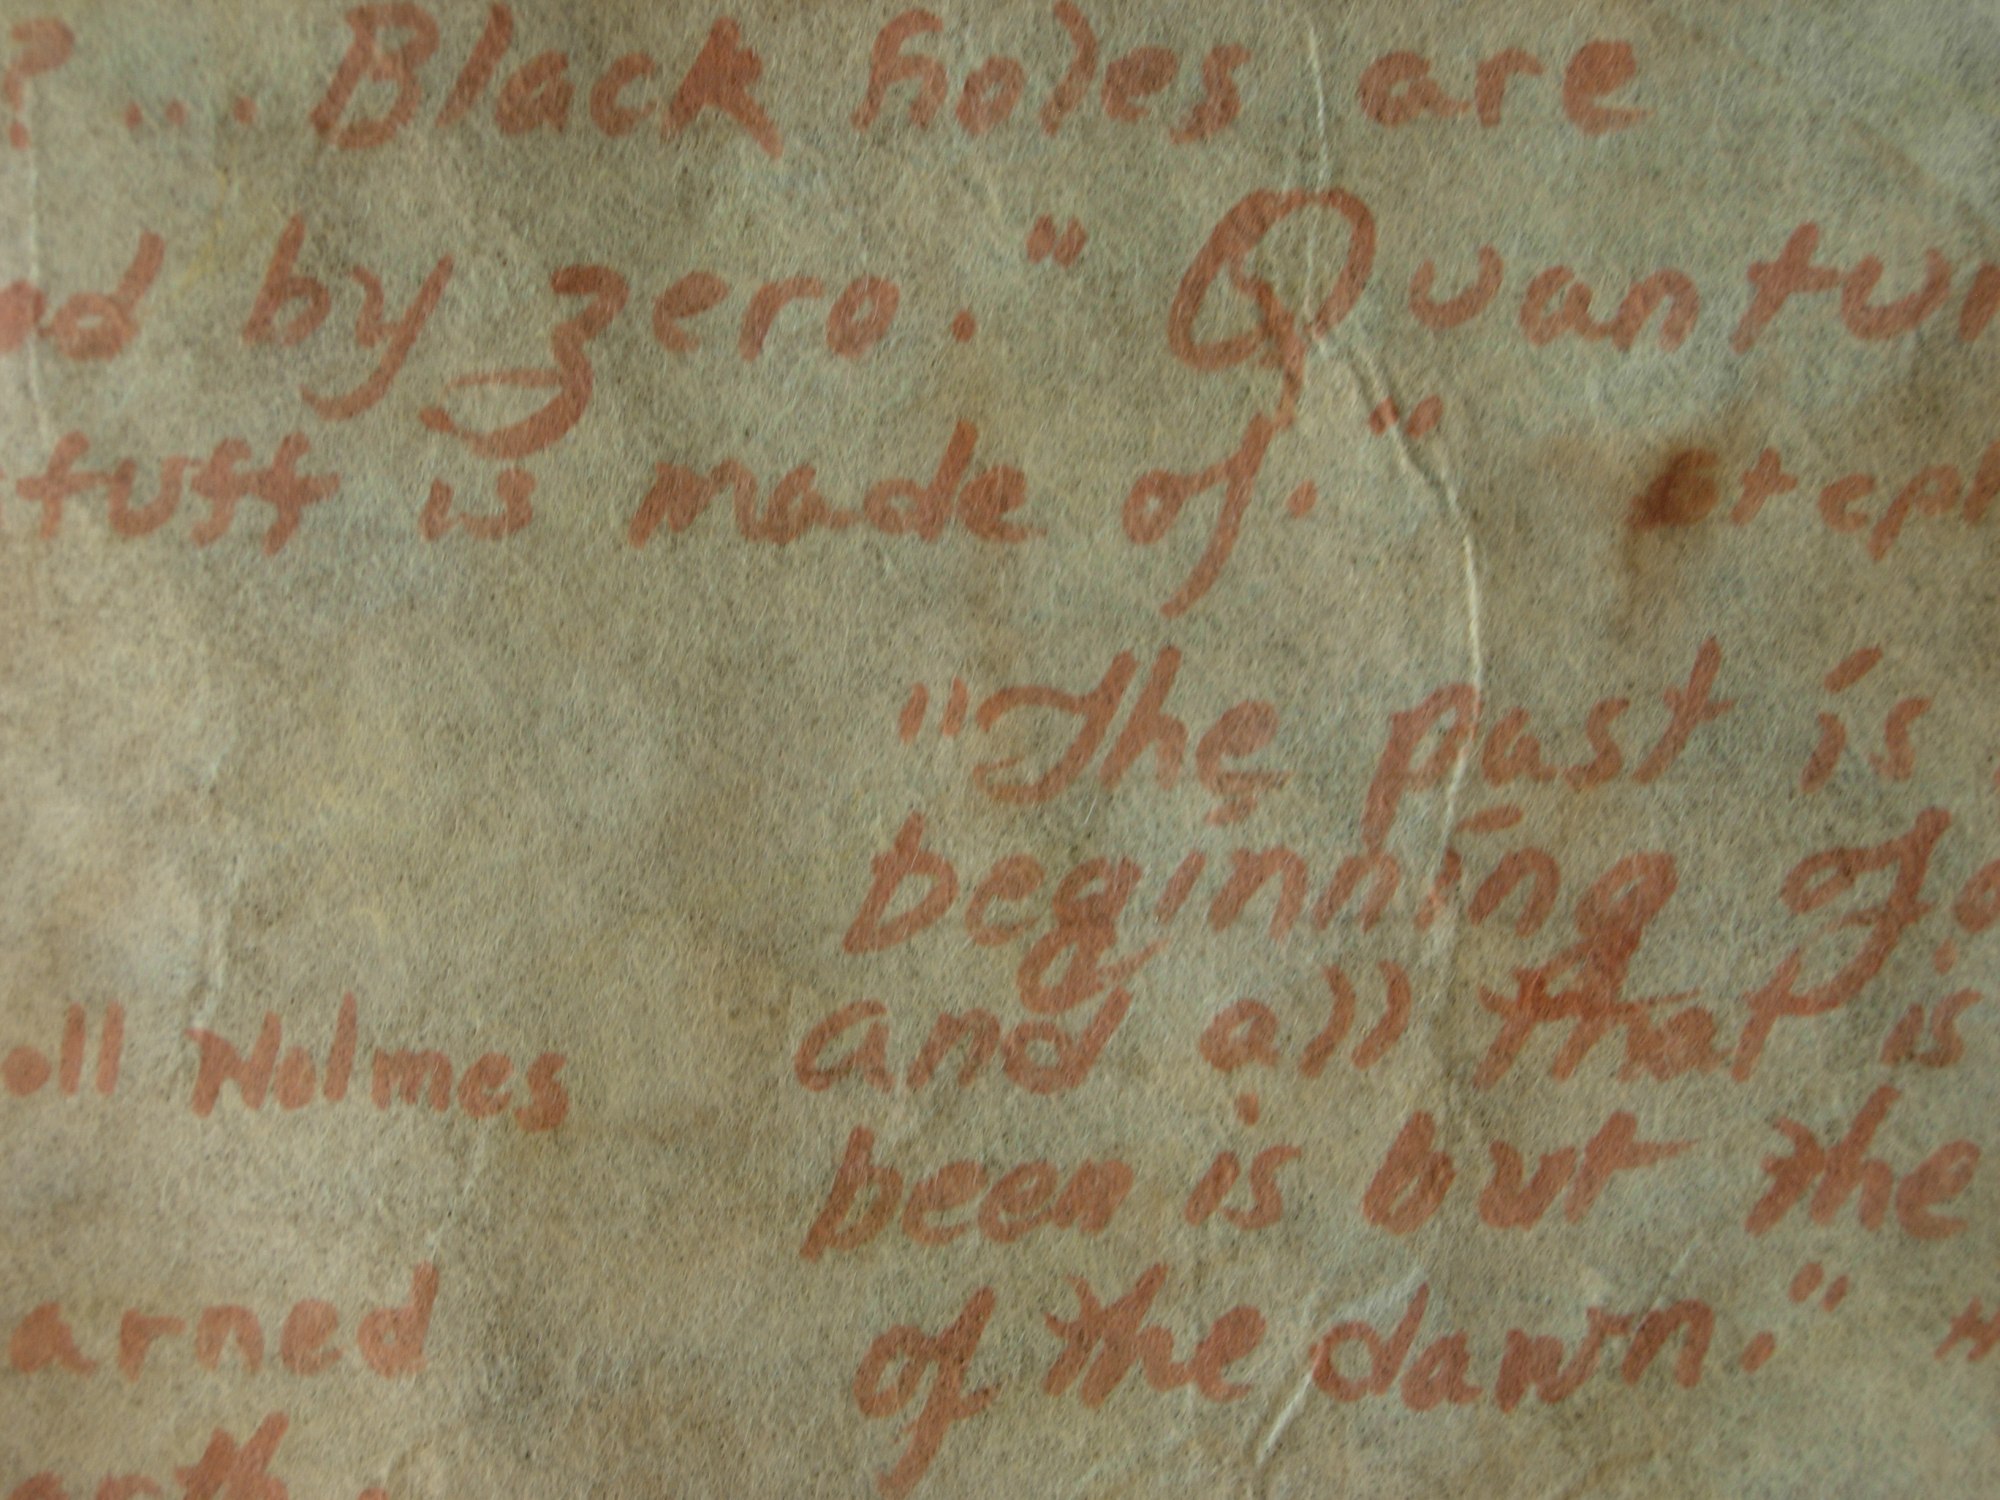 ? ... Black holes are
ed by zero." Quantum
stuff is made of." Steph
"The past is
beginning of
and all that is
been is but the
of the dawn."
oll Holmes
arned